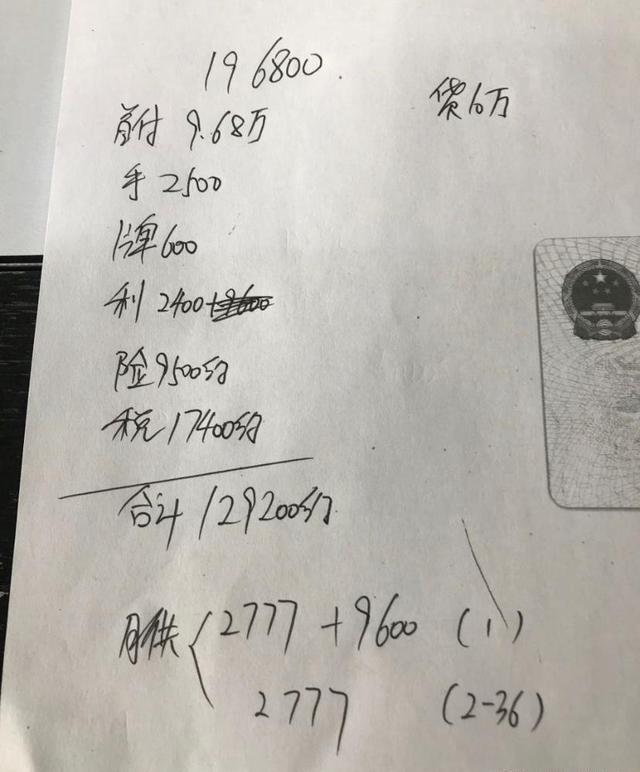 196800.
首付 9.68万
贷10万
手 2500
牌 600
利 2400
险 9500约
税 17400约
合计 129200约
月供 2777 + 9600 (1)
2777 (2-36)